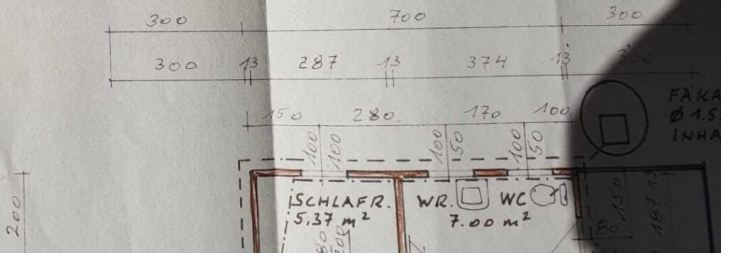 300 700 300
300 13 287 13 374 13 300
150 280 170 100
100 100 100 50 100 50
FÄKA
Ø 1.5
INHA
SCHLAFR. WR. WC
5,37 m² 7.00 m²
200
150 187
80